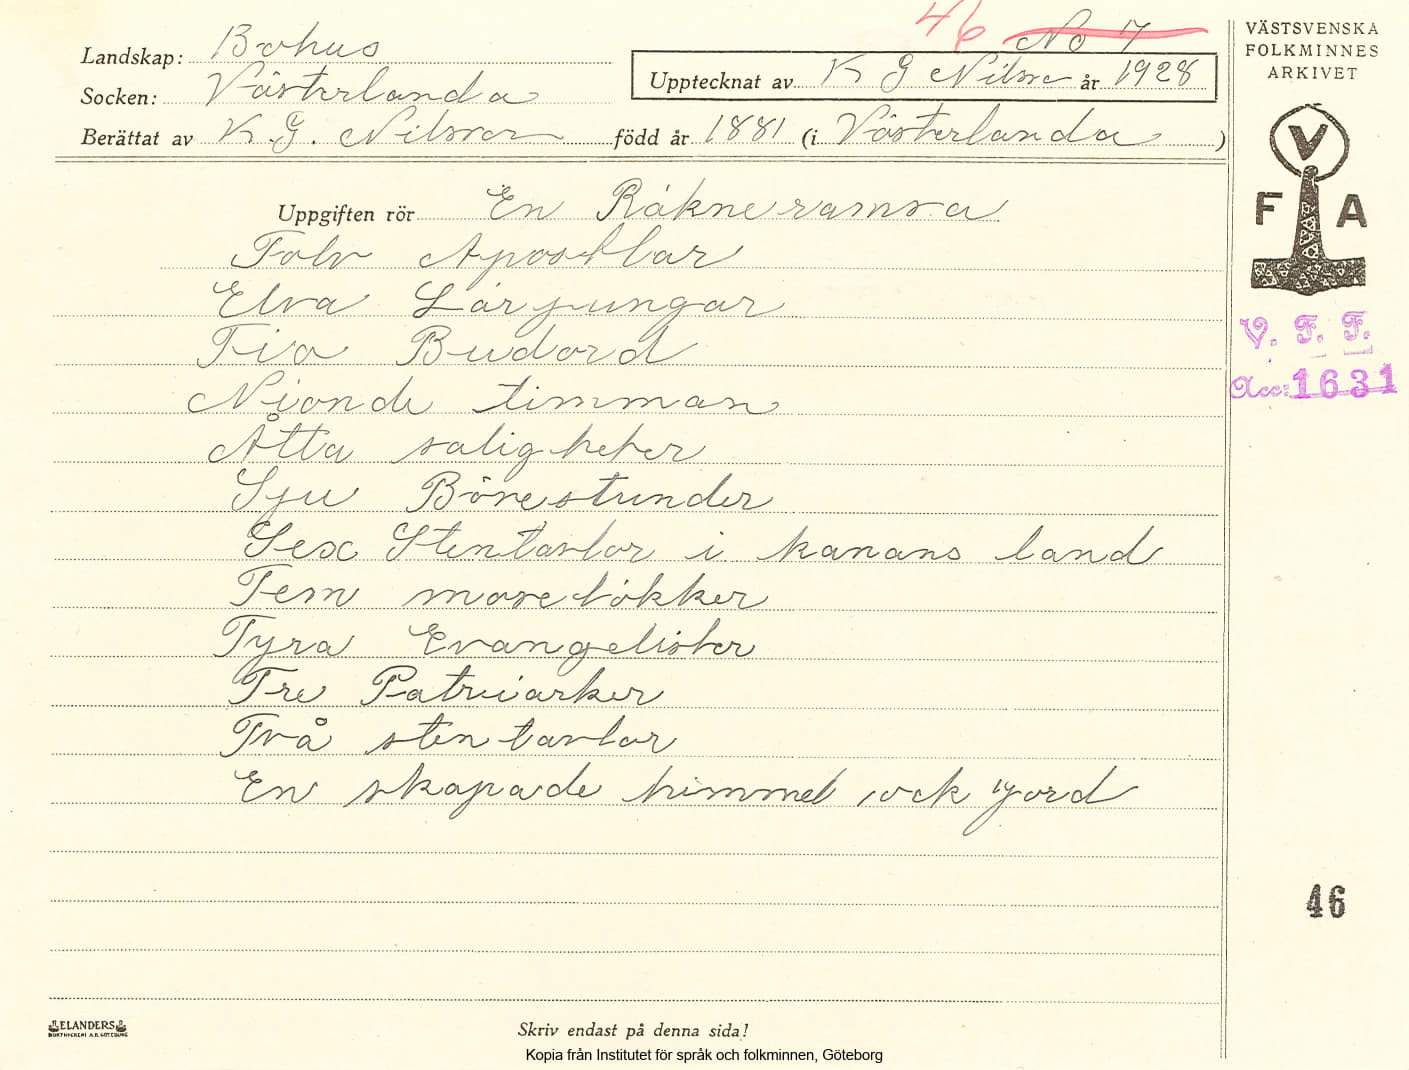 46 No 7
Landskap: Bohus
Socken: Västerlanda
Upptecknat av K G Nilsson år 1928
Berättat av K. G. Nilsson född år 1881 (i Västerlanda)
Uppgiften rör En Räkneramsa
Tolv Apostlar
Elva Lärjungar
Tio Budord
Nionde timman
Åtta saligheter
Sju Bönestunder
Sex Stentavlor i kanans land
Fem mosebökker
Fyra Evangelister
Tre Patriarker
Två stentavlor
En skapade himmel ock Jord
VÄSTSVENSKA
FOLKMINNES
ARKIVET
V
F A
V. F. F.
Acc: 1631
46
ELANDERS
BOKTRYCKERI A.B. GÖTEBORG
Skriv endast på denna sida!
Kopia från Institutet för språk och folkminnen, Göteborg